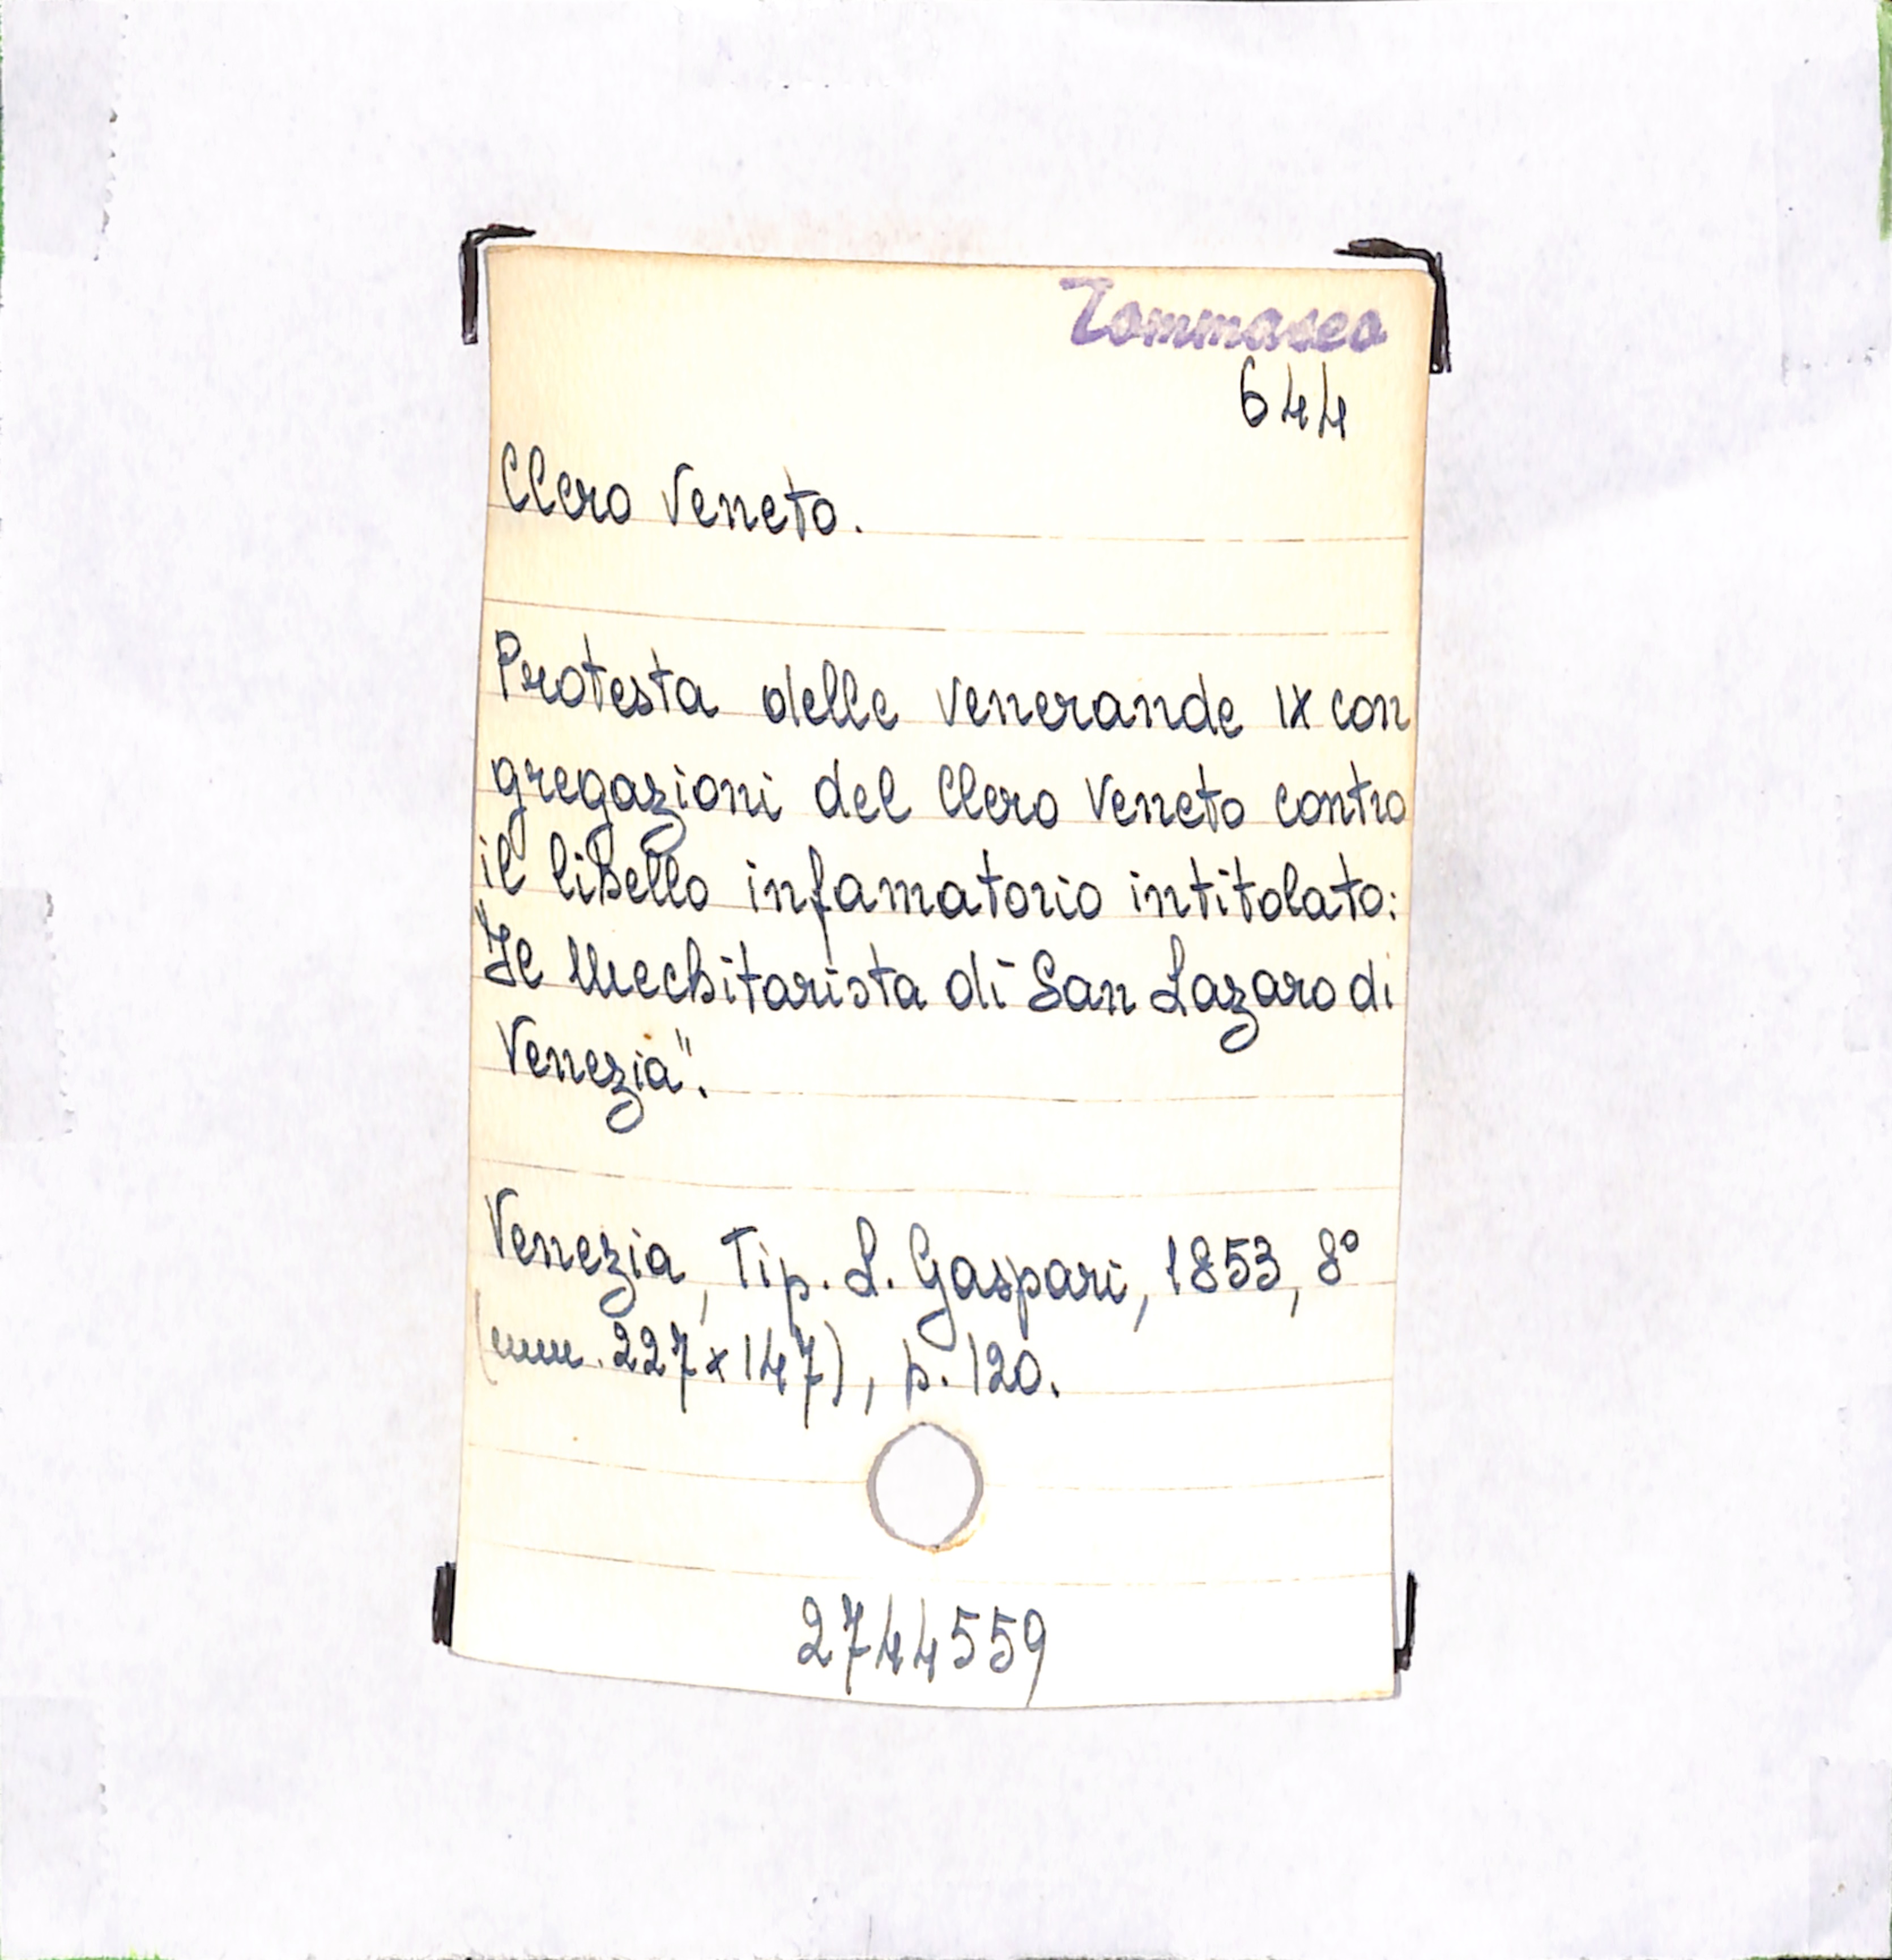 Tommaseo
644
Clero Veneto.
Protesta delle venerande IX con
gregazioni del Clero Veneto contro
il libello infamatorio intitolato:
"Il Mechitarista di San Lazaro di
Venezia".
Venezia, Tip. L. Gaspari, 1853, 8°
(mm. 227x147), p. 120.
2744559